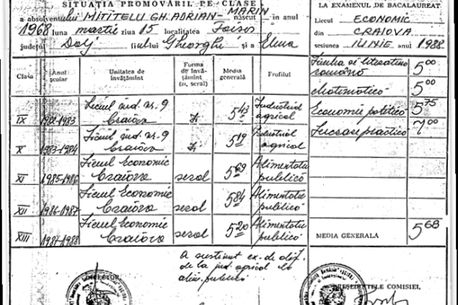 SITUAȚIA PROMOVĂRII PE CLASE
a absolventului MITITELU GH. ADRIAN - MARIN născut în
1968 luna martie ziua 15 localitatea
Dolj fiul lui Gheorghe și Elena
Clasa Anul școlar Unitatea de învățământ Forma de învățământ (zi, seral) Media generală Profilul
IX 1982-1983 Liceul ind. nr. 9 Craiova zi 5,43 Industrial agricol
X 1983-1984 Liceul ind. nr. 9 Craiova zi 5,19 Industrial agricol
XI 1985-1986 Liceul Economic Craiova seral 5,69 Alimentație publică
XII 1986-1987 Liceul Economic Craiova seral 5,84 Alimentație publică
XIII 1987-1988 Liceul Economic Craiova seral 5,20 Alimentație publică
A susținut ex. de dif.
de la ind. agricol la
alim. publică
LA EXAMENUL DE BACALAUREAT
Liceul ECONOMIC
CRAIOVA
sesiunea IUNIE anul 1988
Limba și literatura română 5,00
Matematică 5,00
Economie politică 5,75
Lucrare practică 7,00
MEDIA GENERALĂ 5,68
PREȘEDINTELE COMISIEI